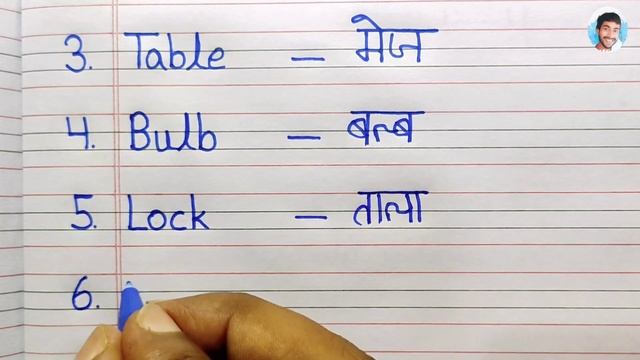 3. Table – मेज
4. Bulb – बल्ब
5. Lock – ताला
6.